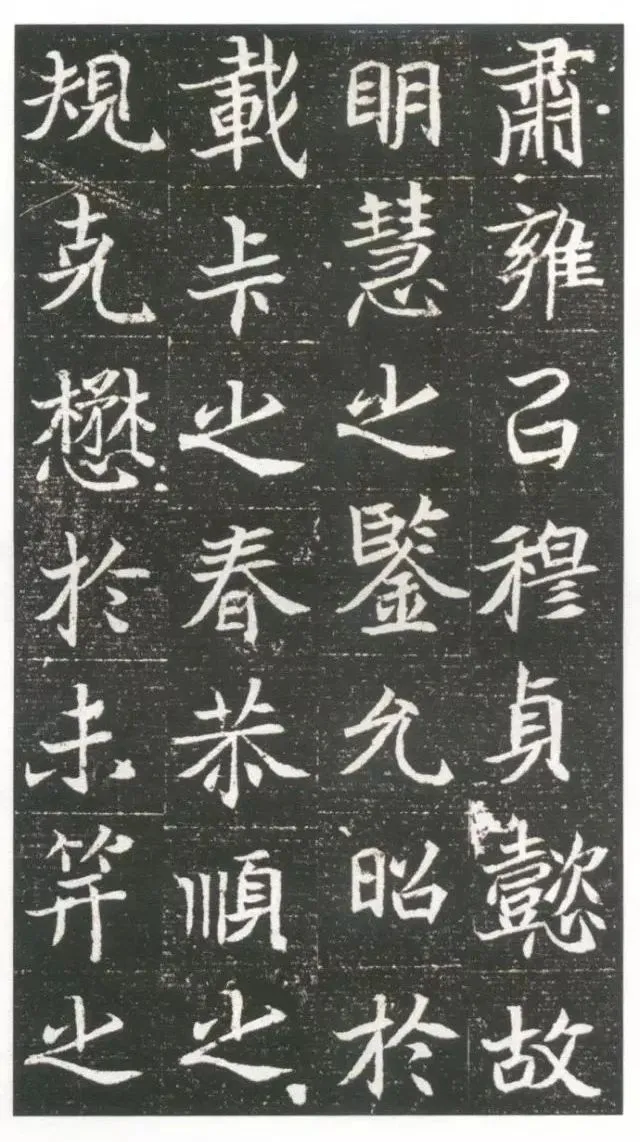 肅雍已穆貞懿故
明慧之鑒允昭於
載卡之春恭順之
規克懋於未笄之